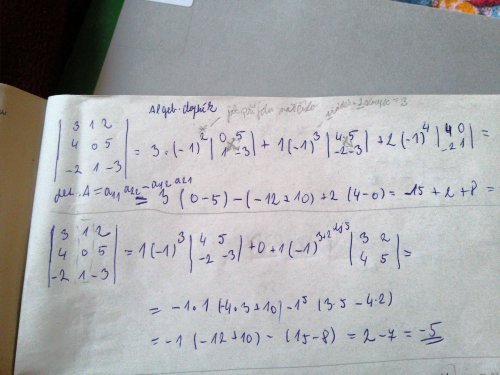 Algeb. doplněk
| 3 1 2 |
| 4 0 5 | = 3·(-1)² | 0 5 | + 1(-1)³ | 4 5 | + 2(-1)⁴ | 4 0 | =
| -2 1 -3 | | 1 -3 | | -2 -3 | | -2 1 |
det. A = a₁₁ a₂₂ - a₁₂ a₂₁ = 3 (0-5) - (-12+10) + 2 (4-0) = -15 + 2 + 8 =
| 3 1 2 |
| 4 0 5 | = 1(-1)³ | 4 5 | + 0 + 1(-1)³⁺²⁼⁵ | 3 2 | =
| -2 1 -3 | | -2 -3 | | 4 5 |
= -1·1 (-4·3+10) -1⁵ (3·5-4·2)
= -1 (-12+10) - (15-8) = 2-7 = -5